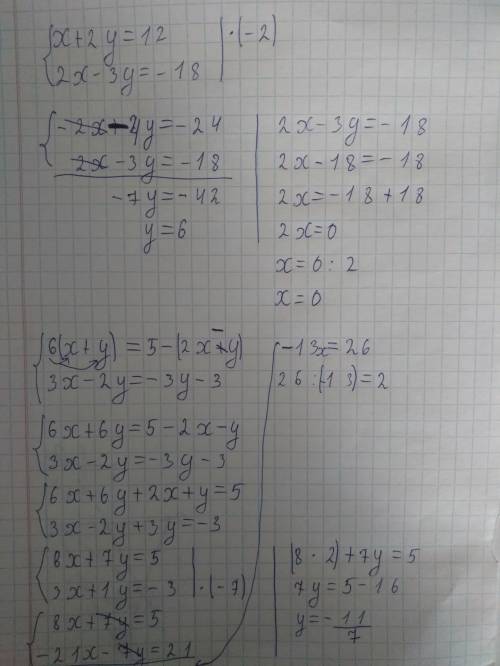 x+2y=12 | ·(-2)
2x-3y=-18
-2x-4y=-24
2x-3y=-18
-7y=-42
y=6
2x-3y=-18
2x-18=-18
2x=-18+18
2x=0
x=0:2
x=0
6(x+y)=5-(2x+y)
3x-2y=-3y-3
6x+6y=5-2x-y
3x-2y=-3y-3
6x+6y+2x+y=5
3x-2y+3y=-3
8x+7y=5
3x+1y=-3 | ·(-7)
8x+7y=5
-21x-7y=21
-13x=26
26:(-13)=2
(8·2)+7y=5
7y=5-16
y=-11/7